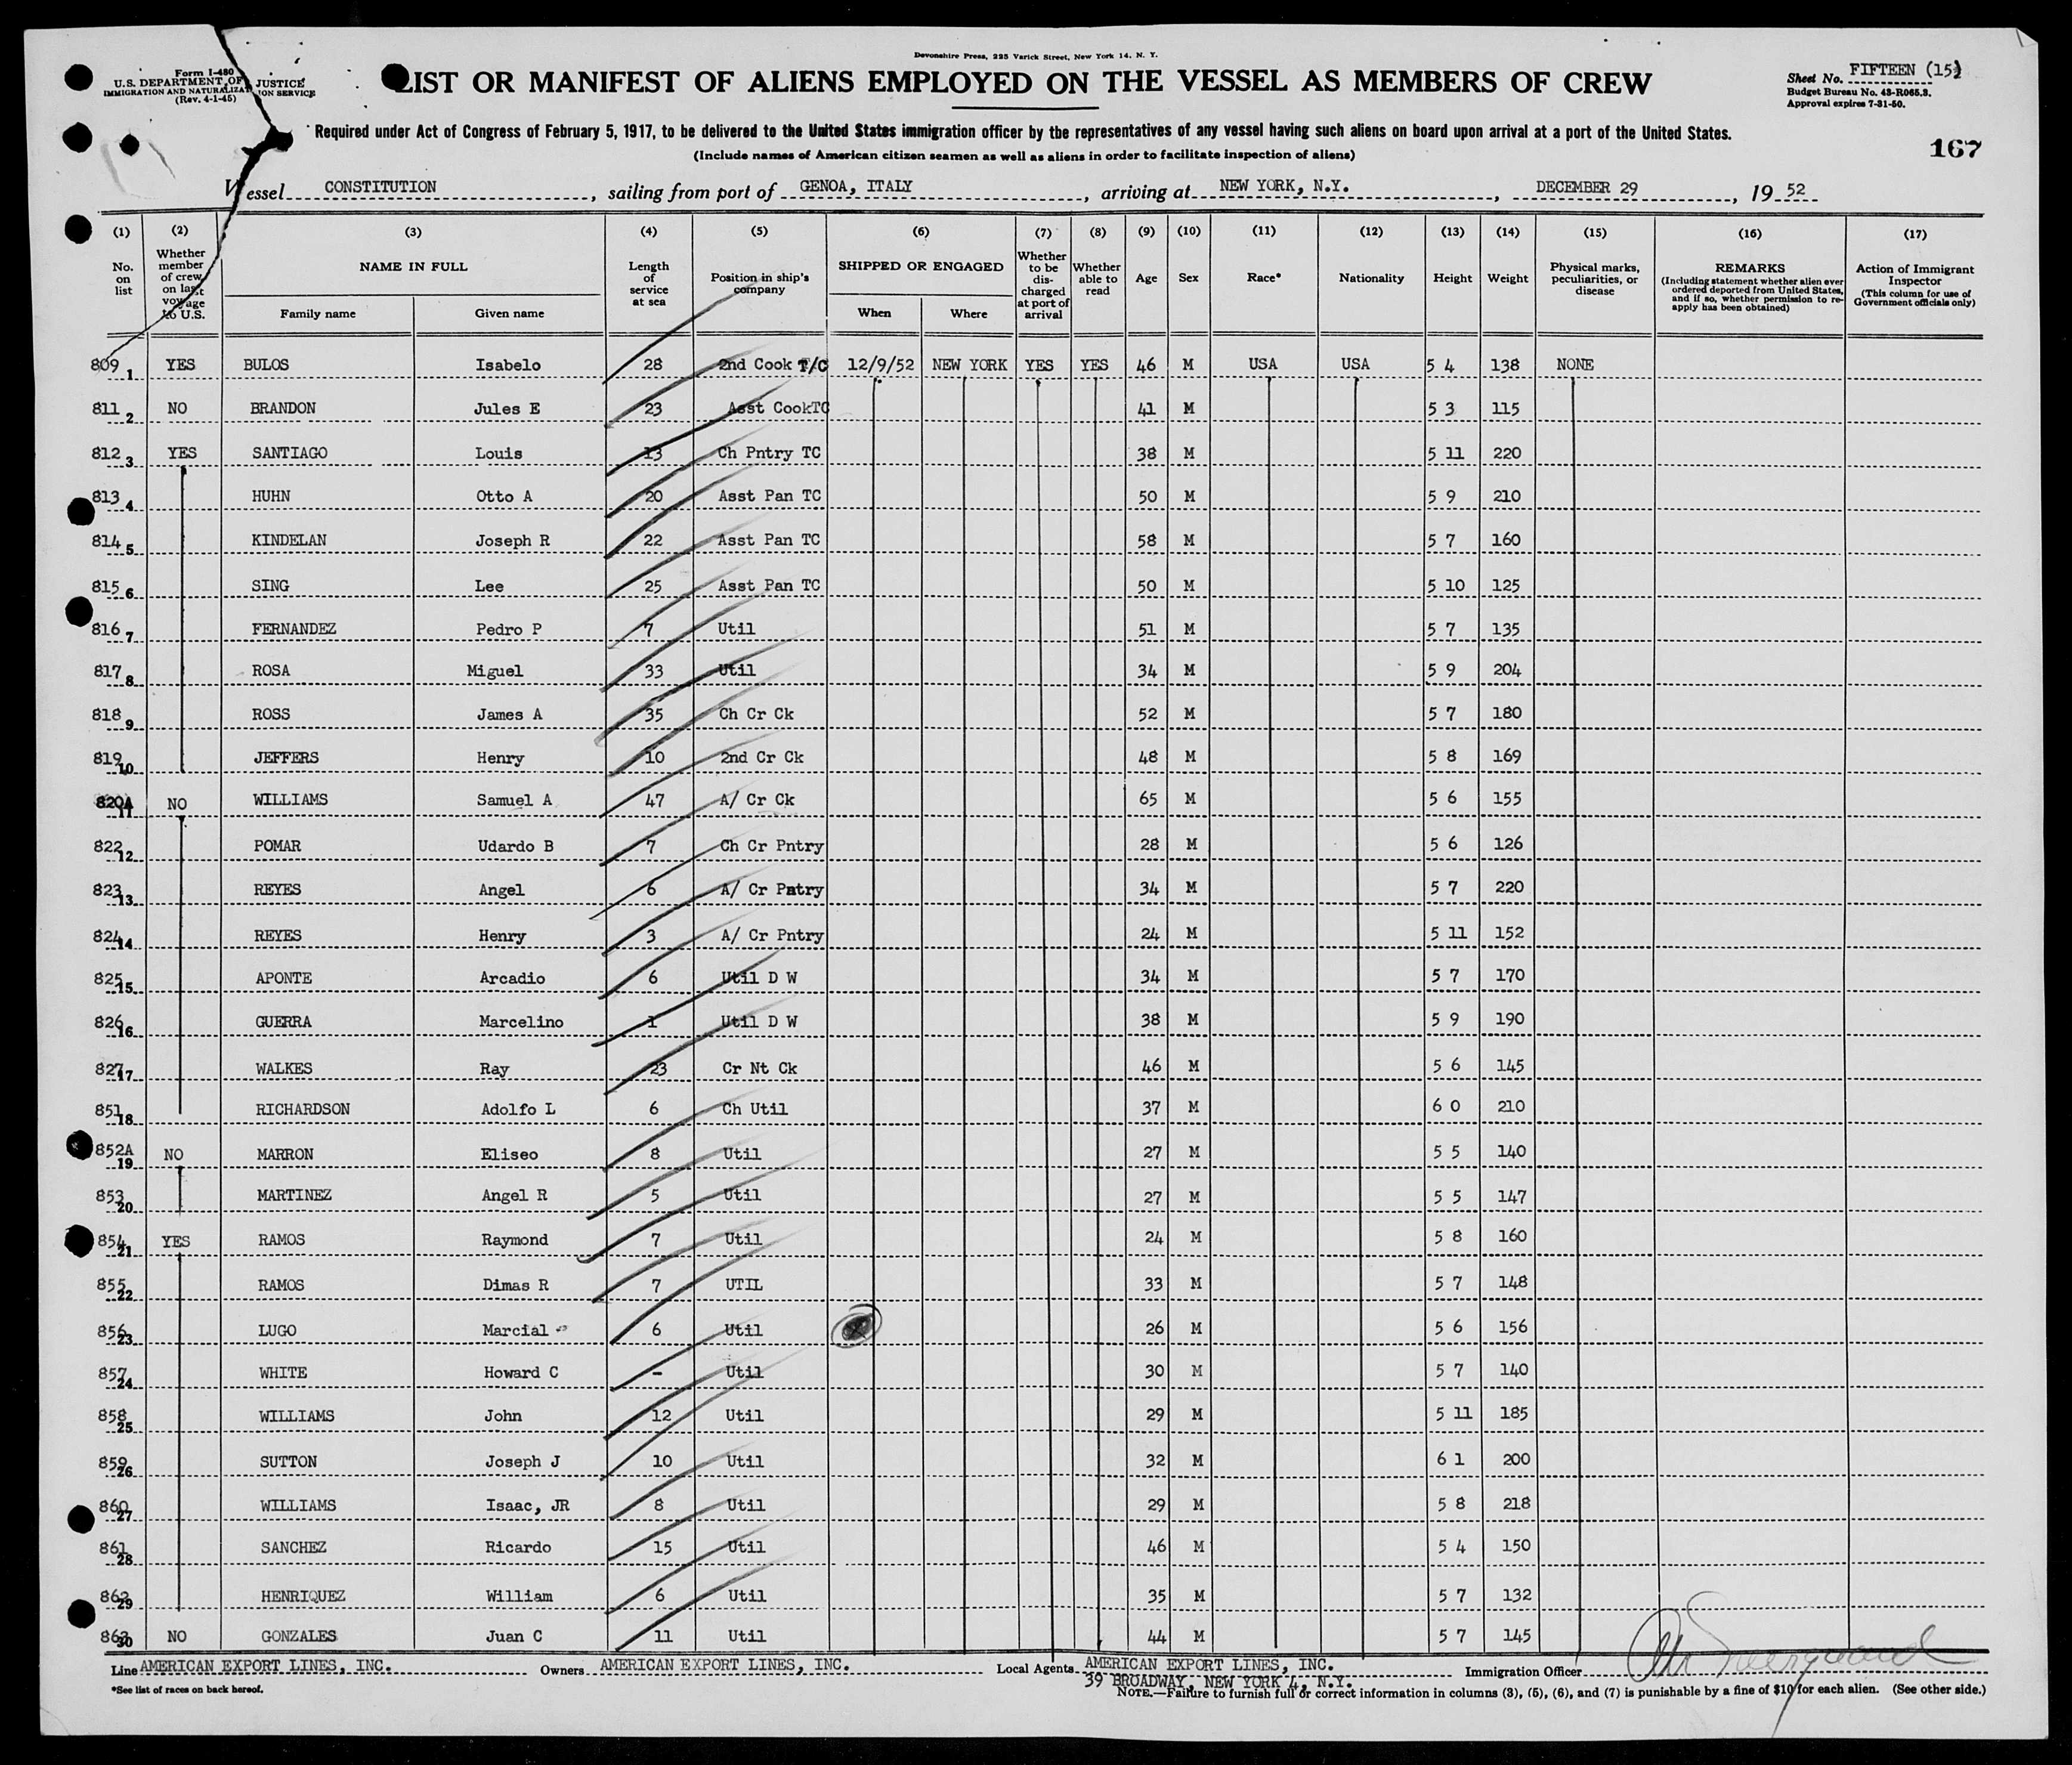 Devonshire Press, 225 Varick Street, New York 14, N. Y.
Form I-480
U.S. DEPARTMENT OF JUSTICE
IMMIGRATION AND NATURALIZATION SERVICE
(Rev. 4-1-45)
LIST OR MANIFEST OF ALIENS EMPLOYED ON THE VESSEL AS MEMBERS OF CREW
Sheet No. FIFTEEN (15)
Budget Bureau No. 43-R065.3.
Approval expires 7-31-50.
Required under Act of Congress of February 5, 1917, to be delivered to the United States immigration officer by the representatives of any vessel having such aliens on board upon arrival at a port of the United States.
(Include names of American citizen seamen as well as aliens in order to facilitate inspection of aliens)
167
Vessel CONSTITUTION, sailing from port of GENOA, ITALY, arriving at NEW YORK, N.Y., DECEMBER 29, 19 52
(1) (2) (3) (4) (5) (6) (7) (8) (9) (10) (11) (12) (13) (14) (15) (16) (17)
No. on list
Whether member of crew on last voyage to U.S.
NAME IN FULL
Family name Given name
Length of service at sea
Position in ship's company
SHIPPED OR ENGAGED
When Where
Whether to be discharged at port of arrival
Whether able to read
Age
Sex
Race*
Nationality
Height
Weight
Physical marks, peculiarities, or disease
REMARKS
(Including statement whether alien ever ordered deported from United States, and if so, whether permission to re-apply has been obtained)
Action of Immigrant Inspector
(This column for use of Government officials only)
809 1 YES BULOS Isabelo 28 2nd Cook T/C 12/9/52 NEW YORK YES YES 46 M USA USA 5 4 138 NONE
811 2 NO BRANDON Jules E 23 Asst CookTC 41 M 5 3 115
812 3 YES SANTIAGO Louis 13 Ch Pntry TC 38 M 5 11 220
813 4 HUHN Otto A 20 Asst Pan TC 50 M 5 9 210
814 5 KINDELAN Joseph R 22 Asst Pan TC 58 M 5 7 160
815 6 SING Lee 25 Asst Pan TC 50 M 5 10 125
816 7 FERNANDEZ Pedro P 7 Util 51 M 5 7 135
817 8 ROSA Miguel 33 Util 34 M 5 9 204
818 9 ROSS James A 35 Ch Cr Ck 52 M 5 7 180
819 10 JEFFERS Henry 10 2nd Cr Ck 48 M 5 8 169
820A 11 NO WILLIAMS Samuel A 47 A/ Cr Ck 65 M 5 6 155
822 12 POMAR Udardo B 7 Ch Cr Pntry 28 M 5 6 126
823 13 REYES Angel 6 A/ Cr Pntry 34 M 5 7 220
824 14 REYES Henry 3 A/ Cr Pntry 24 M 5 11 152
825 15 APONTE Arcadio 6 Util D W 34 M 5 7 170
826 16 GUERRA Marcelino 1 Util D W 38 M 5 9 190
827 17 WALKES Ray 23 Cr Nt Ck 46 M 5 6 145
851 18 RICHARDSON Adolfo L 6 Ch Util 37 M 6 0 210
852A 19 NO MARRON Eliseo 8 Util 27 M 5 5 140
853 20 MARTINEZ Angel R 5 Util 27 M 5 5 147
854 21 YES RAMOS Raymond 7 Util 24 M 5 8 160
855 22 RAMOS Dimas R 7 UTIL 33 M 5 7 148
856 23 LUGO Marcial 6 Util 26 M 5 6 156
857 24 WHITE Howard C - Util 30 M 5 7 140
858 25 WILLIAMS John 12 Util 29 M 5 11 185
859 26 SUTTON Joseph J 10 Util 32 M 6 1 200
860 27 WILLIAMS Isaac, JR 8 Util 29 M 5 8 218
861 28 SANCHEZ Ricardo 15 Util 46 M 5 4 150
862 29 HENRIQUEZ William 6 Util 35 M 5 7 132
863 30 NO GONZALES Juan C 11 Util 44 M 5 7 145
Line AMERICAN EXPORT LINES, INC. Owners AMERICAN EXPORT LINES, INC. Local Agents AMERICAN EXPORT LINES, INC. Immigration Officer
39 BROADWAY, NEW YORK 4, N.Y.
*See list of races on back hereof.
NOTE.—Failure to furnish full or correct information in columns (3), (5), (6), and (7) is punishable by a fine of $10 for each alien. (See other side.)